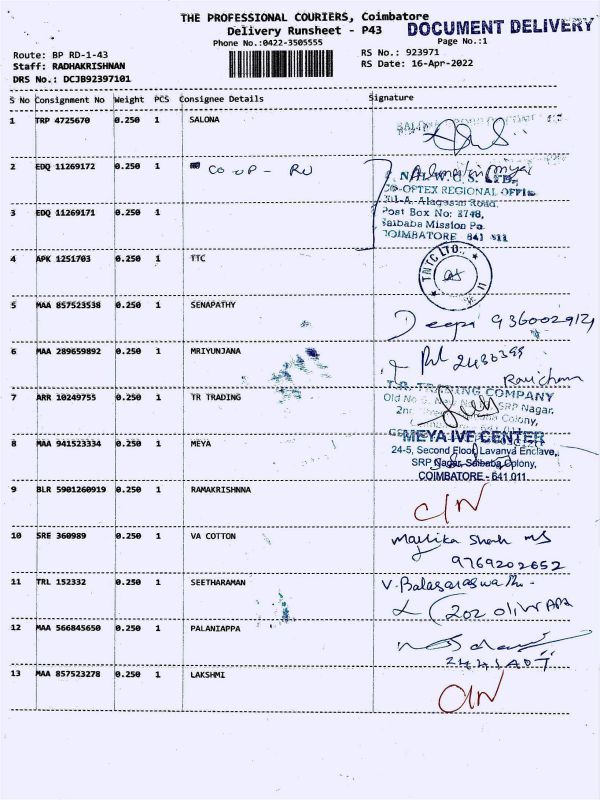 THE PROFESSIONAL COURIERS, Coimbatore
Delivery Runsheet - P43
DOCUMENT DELIVERY
Phone No.:0422-3505555
Page No.:1
Route: BP RD-1-43
RS No.: 923971
Staff: RADHAKRISHNAN
RS Date: 16-Apr-2022
DRS No.: DCJB92397101
S No Consignment No Weight PCS Consignee Details Signature
1 TRP 4725670 0.250 1 SALONA
2 EDQ 11269172 0.250 1 CO-OP - RU
CO-OPTEX REGIONAL OFFICE
3 EDQ 11269171 0.250 1
Post Box No: 3748,
Saibaba Mission Po.
COIMBATORE 641 011
4 APK 1251703 0.250 1 TTC
TNTC LTD.
5 MAA 857523538 0.250 1 SENAPATHY
Deepi 9360029121
6 MAA 289659892 0.250 1 MRIYUNJANA
2436399
7 ARR 10249755 0.250 1 TR TRADING
T.R. TRADING COMPANY
SRP Nagar,
Colony,
8 MAA 941523334 0.250 1 MEYA
MEYA IVF CENTER
24-5, Second Floor, Lavanya Enclave,
SRP Nagar, Saibaba Colony,
COIMBATORE - 641 011.
9 BLR 5901260919 0.250 1 RAMAKRISHNNA
C/N
10 SRE 360989 0.250 1 VA COTTON
Mallika Shah
9769202652
11 TRL 152332 0.250 1 SEETHARAMAN
V. Balasaraswathi -
202
12 MAA 566845650 0.250 1 PALANIAPPA
13 MAA 857523278 0.250 1 LAKSHMI
C/N